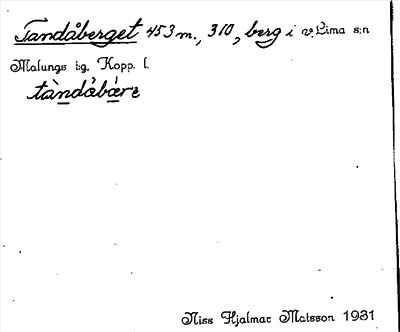 Tandåberget 453 m., 310, berg i v. Lima s:n
Malungs tg. Kopp. l.
tàndåbǽrɛ
Niss Hjalmar Matsson 1931